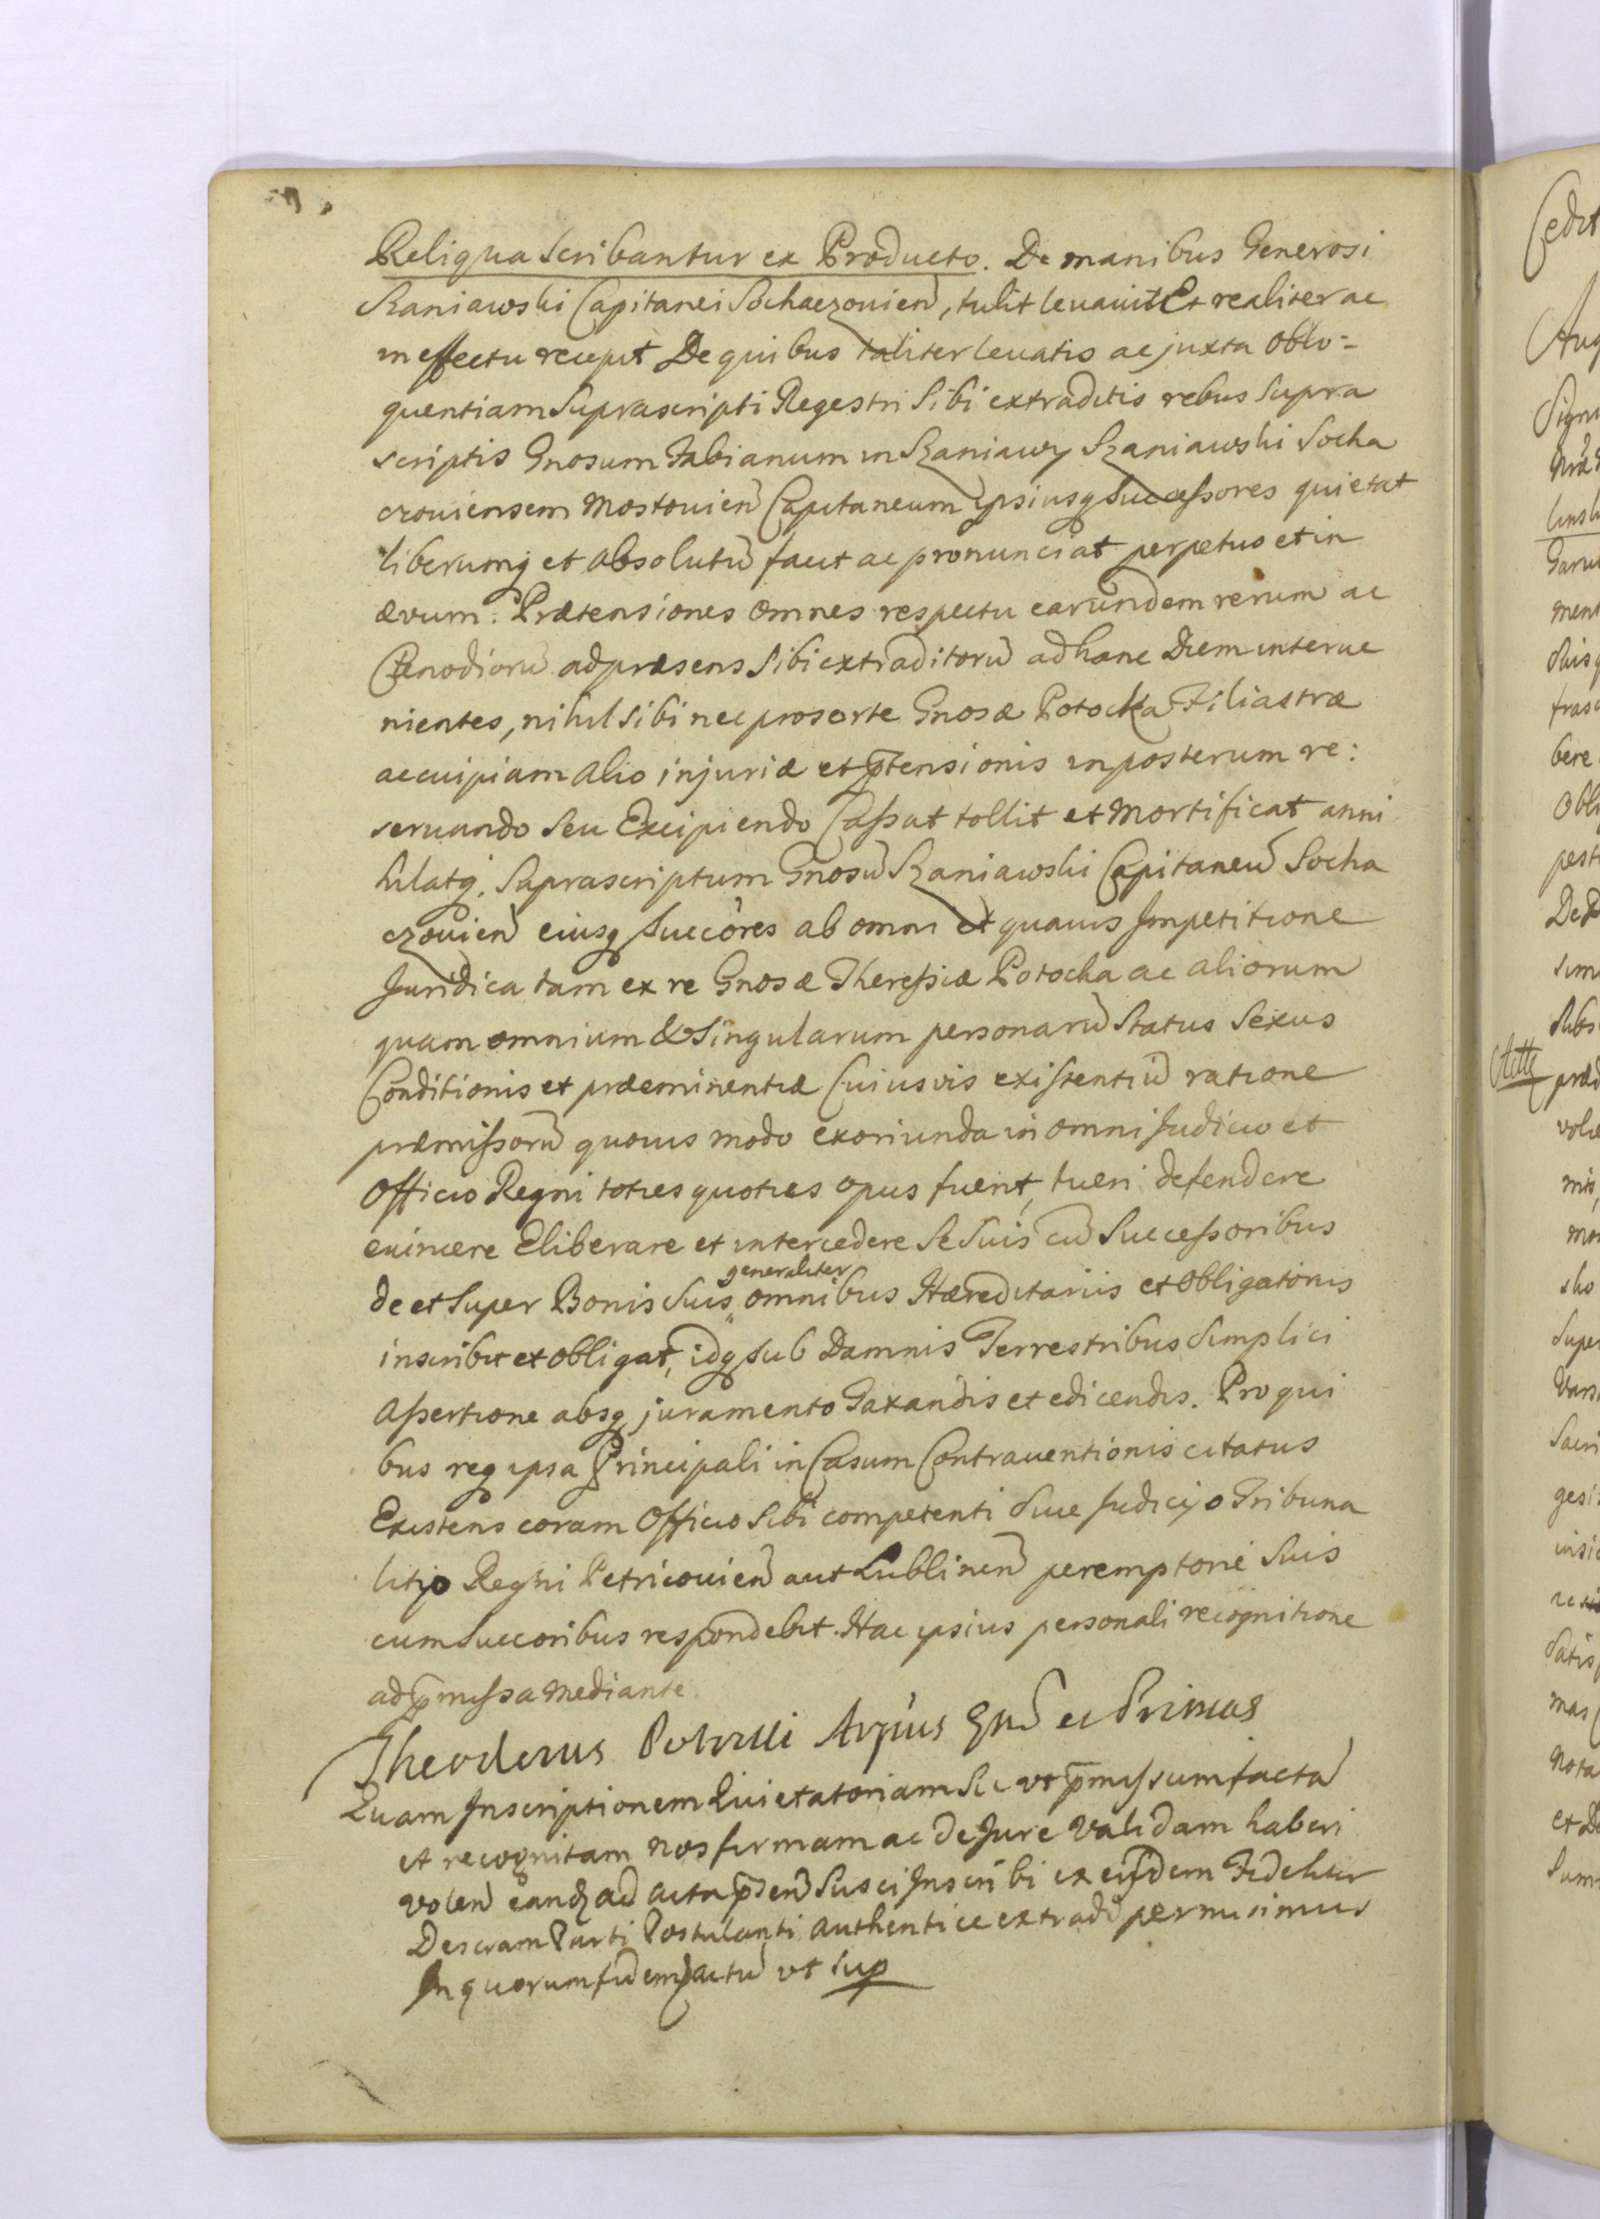 Reliqua scribantur ex Producto. De manibus Generosi
Szaniawski Capitanei Sochaczouien, tulit leuauit Et realiter ac
in effectu recepit De quibus taliter leuatis ac juxta Oblo=
quentiam Suprascripti Regestri Sibi extraditis rebus Supra
scriptis Gnosum Fabianum in Szaniawy Szaniawski Socha
czouiensem Mostouien Capitaneum ipsiusq Successores quietat
liberumq et absolutu facit ac pronunciat perpetuo et in
ævum. Prætensiones omnes respectu earundem rerum ac
Clenodioru ad præsens Sibi extraditoru ad hanc Diem interue
nientes, nihil sibi nec pro sorte Gnosæ Potocka Filiastræ
ac cuipiam alio injuriæ et ptensionis in posterum re:
seruando seu Excipiendo Cassat tollit et Mortificat anni
hilatq. Suprascriptum Gnosu Szaniawski Capitaneu Socha
czouien eiusq Succores ab omni et quauis Impetitione
Juridica tam ex re Gnosæ Theressiæ Potocka ac aliorum
quam omnium & Singularum personaru Status Sexus
Conditionis et præeminentiæ Cuiusvis existentiu ratione
præmissoru quouis modo exoriunda in omni Judicio et
Officio Regni toties quoties opus fuerit, tueri defendere
euincere Eliberare et intercedere Se Suis cu Successoribus
de et Super Bonis Suis generaliter omnibus Hæreditariis et Obligatoriis
inscribit et obligat, idq sub Damnis Terrestribus Simplici
Assertione absq juramento Taxandis et edicendis. Pro qui
bus req ipsa Principali in Casum Contrauentionis citatus
Existens coram Officio Sibi competenti Siue Judicijo Tribuna
litjo Regni Petricouien aut Lublinen peremptorie Suis
cum Succoribus respondebit. Hac ipsius personali recognitione
ad pmissa mediante
Theodorus Potocki
Quam Inscriptionem Quietatoriam Sic vt pmissum facta
et recognitam nos firmam ac de Jure Validam haberi
volen eandq ad acta psen Susci Inscribi ex eisdem Fideliter
Descram Parti Postulanti authentice extradi permisimus
In quorum fidem actu vt sup